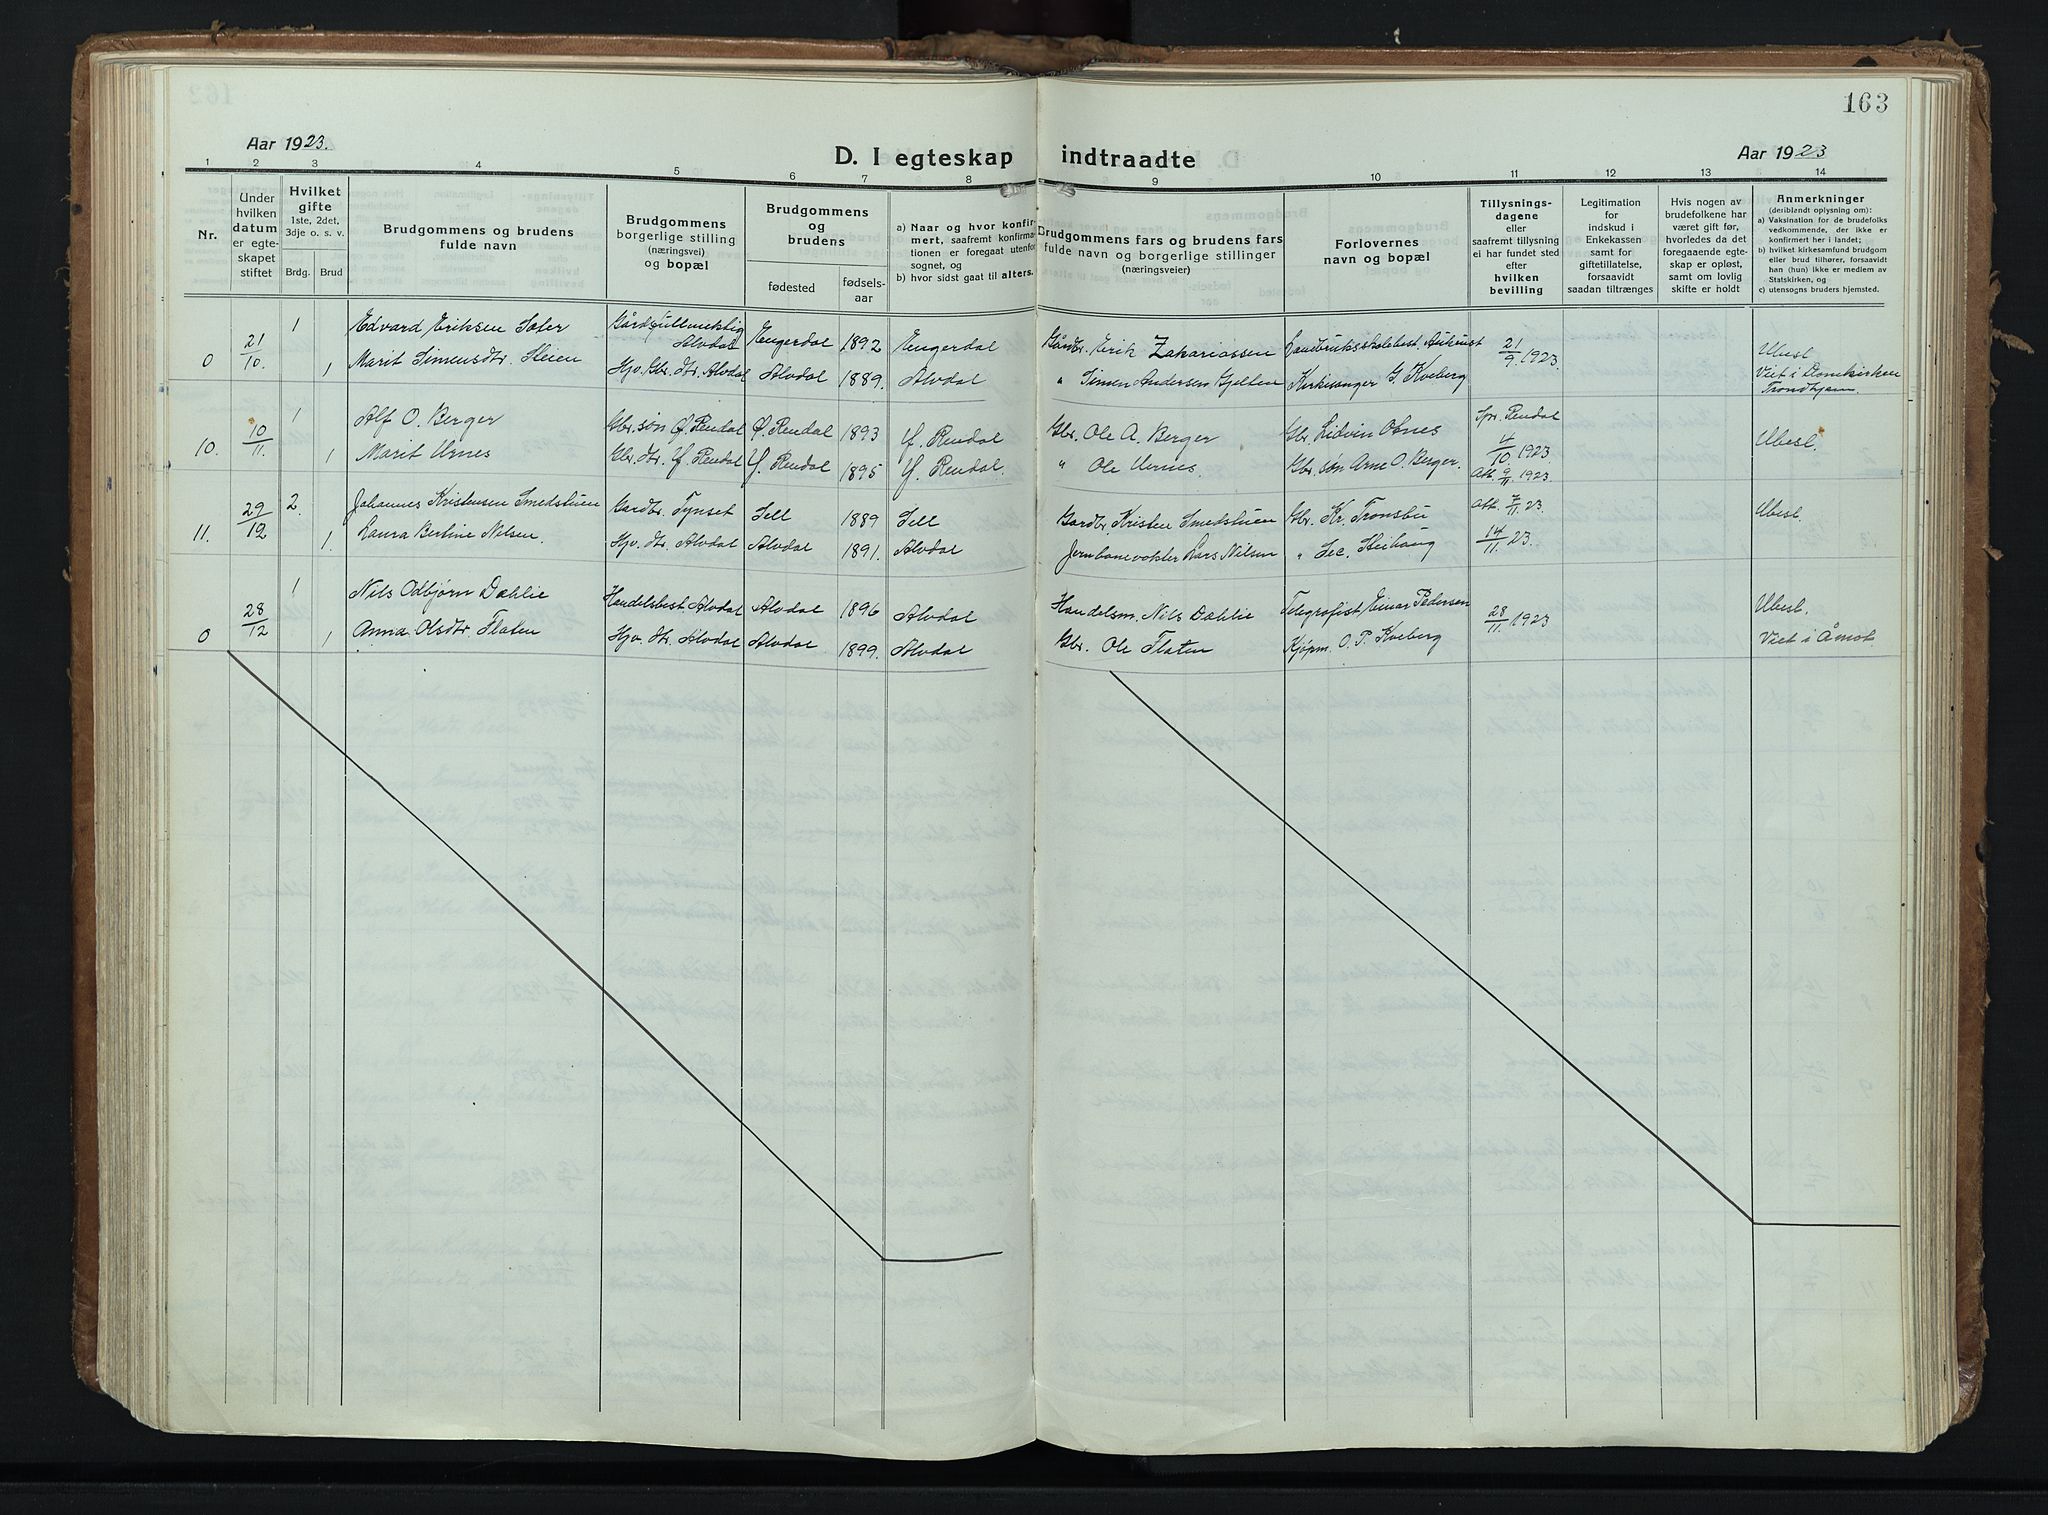 163
Aar 1923.
D. I egteskap indtraadte
Aar 1923
1 2 3 4 5 6 7 8 9 10 11 12 13 14
Nr.
Under
hvilken
datum
er egte-
skapet
stiftet
Hvilket
gifte
1ste, 2det,
3dje o. s. v.
Brdg. Brud
Brudgommens og brudens
fulde navn
Brudgommens
borgerlige stilling
(næringsvei)
og bopæl
Brudgommens
og
brudens
fødested
fødsels-
aar
a) Naar og hvor konfir-
mert, saafremt konfirma-
tionen er foregaat utenfor
sognet, og
b) hvor sidst gaat til alters.
Brudgommens fars og brudens fars
fulde navn og borgerlige stillinger
(næringsveier)
Forlovernes
navn og bopæl
Tillysnings-
dagene
eller
saafremt tillysning
ei har fundet sted
efter
hvilken
bevilling
Legitimation
for
indskud i
Enkekassen
samt for
giftetillatelse,
forsaavidt
saadan tiltrænges
Hvis nogen av
brudefolkene har
været gift før,
hvorledes da det
foregaaende egte-
skap er opløst,
samt om lovlig
skifte er holdt
Anmerkninger
(deriblendt oplysning om):
a) Vaksination for de brudefolks
vedkommende, der ikke er
konfirmert her i landet;
b) hvilket kirkesamfund brudgom
eller brud tilhører, forsaavidt
han (hun) ikke er medlem av
Statskirken, og
c) utensogns bruders hjemsted.
0 21/10. 1 Edvard Eriksen Sæter Gårdsfullmektig Alvdal Engerdal 1892 Engerdal Gårdbr. Erik Zakariassen Landbruksskolebest. Aukrust 21/9. 1923. Ubesl.
1 Marit Simensdtr. Steien Hjv. Gbr. dtr. Alvdal Alvdal 1889. Alvdal " Simen Andersen Gjelten Kirkesanger G. Kveberg Viet i Domkirken
Trondhjem.
10. 10/11. 1 Alf O. Berger Gbr. søn Ø. Rendal Ø. Rendal 1893 Y. Rendal Gbr. Ole A. Berger Gbr. Lidvin Otnes Spr. Rendal 4/10 1923 Ubesl.
1 Marit Urnes Gbr. dtr. Y. Rendal Y. Rendal 1895 Y. Rendal. " Ole Urnes. Gbr. søn Arne O. Berger. Att. 9/11. 1923.
11. 29/12 2. Johannes Kristensen Smedstuen Gardbr. Tynset Sell 1889 Sell Gardbr. Kristen Smedstuen Gbr. Kr. Tronsbu Att. 7/11. 23. Ubesl.
1. Laura Bertine Nilsen. Hjv. dtr. Alvdal Alvdal 1891. Alvdal Jernbanevokter Lars Nilsen " Steihaug 14/11. 23.
0 28/12 1 Nils Odbjørn Dæhlie Handelsbest. Alvdal Alvdal 1896 Alvdal Handelsm. Nils Dæhlie Telegrafist Einar Pedersen 28/11. 1923 Ubesl.
1 Anna Olsdtr. Flaten Hjv. dtr. Alvdal Alvdal 1899. Alvdal Gbr. Ole Flaten Kjøpm. O. P. Kveberg Viet i Åmot.